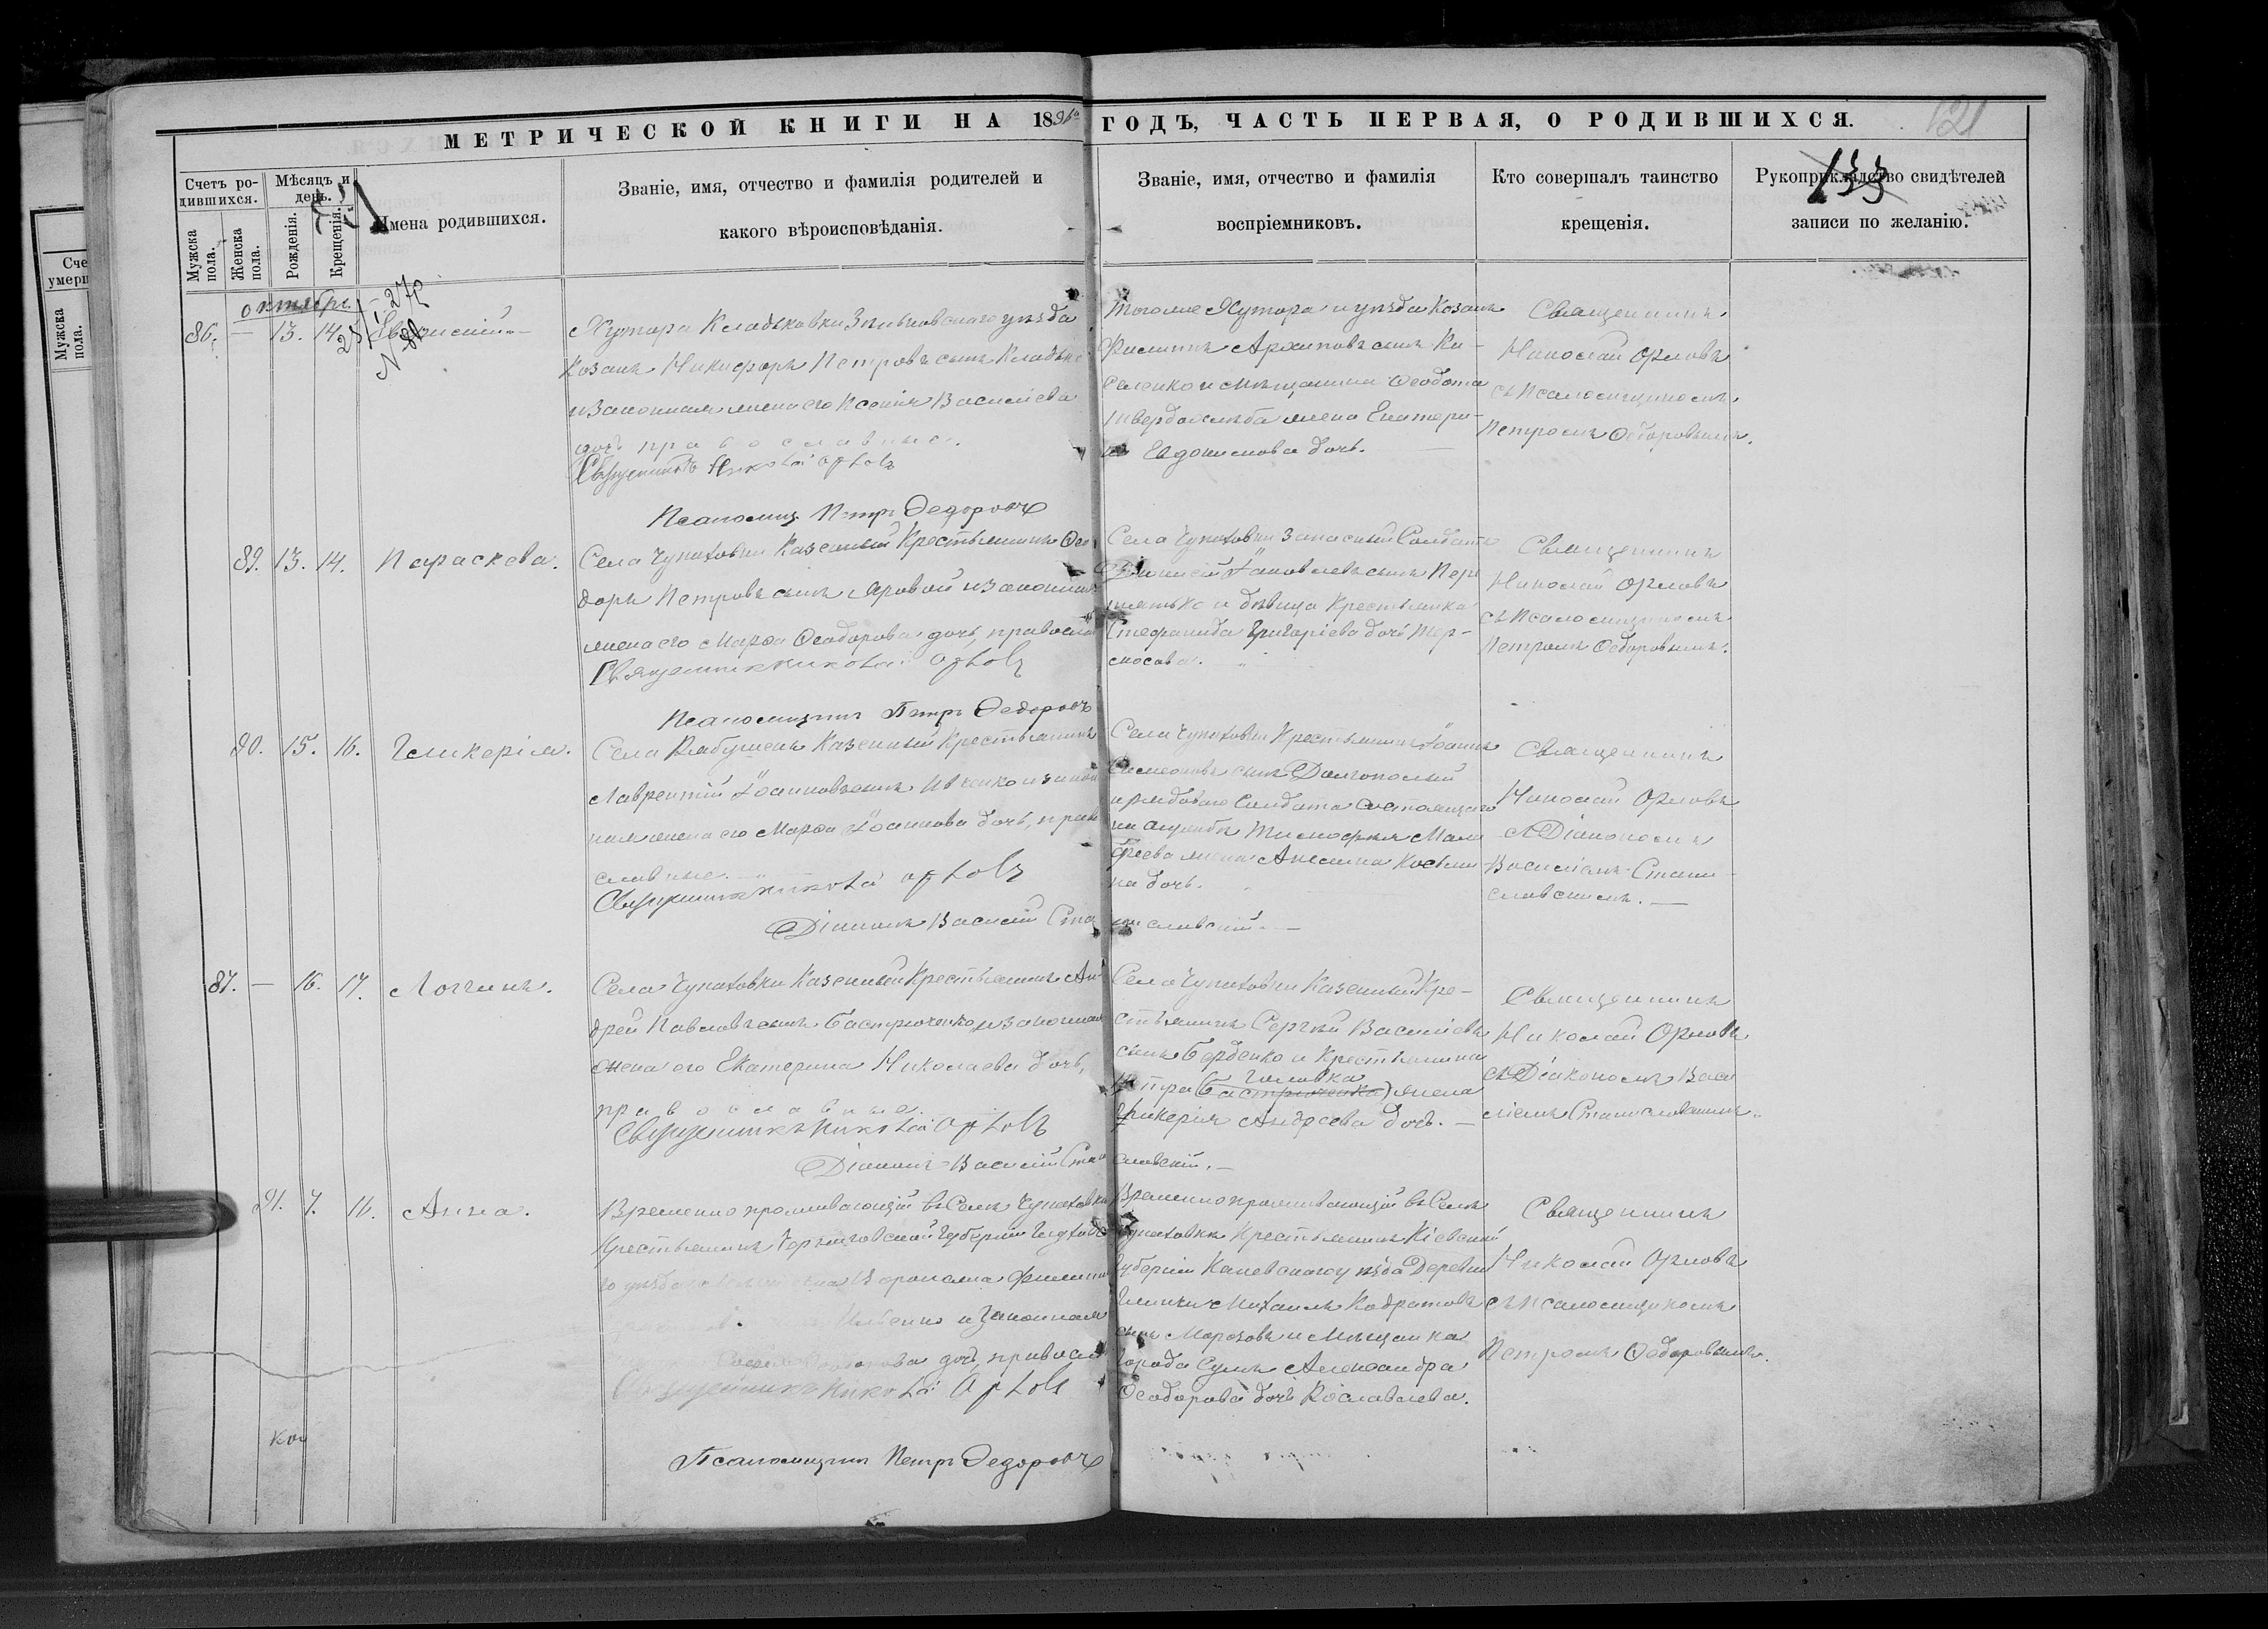 МЕТРИЧЕСКОЙ КНИГИ НА 1896 ГОДЪ, ЧАСТЬ ПЕРВАЯ, О РОДИВШИХСЯ.
121
133
Счетъ ро-
дившихся.
Мужска пола.
Женска пола.
Мѣсяцъ и
день.
Рожденія.
Крещенія.
Имена родившихся.
Званіе, имя, отчество и фамилія родителей и
какого вѣроисповѣданія.
Званіе, имя, отчество и фамилія
воспріемниковъ.
Кто совершалъ таинство
крещенія.
Рукоприкладство свидѣтелей
записи по желанію.
октябрь
86. — 13. 14.
Хутора Зѣньковскаго уѣзда
Козакъ Никифоръ Петровъ сынъ
и законная жена его Ксенія Василіева
дочь православные.
Священникъ Николай Орловъ
Псаломщ. Петръ Федоровъ
Тогоже Хутора и уѣзда Козакъ
Филиппъ Архиповъ сынъ Ки-
селенко и мѣщанина Ѳеодота
Твердохлѣба жена Екатери-
на Евдокимова дочь.
Священникъ
Николай Орловъ
съ Псаломщикомъ
Петромъ Ѳедоровымъ.
89. 13. 14. Параскева.
Села Чупаховки Казенный Крестьянинъ Ѳео
доръ Петровъ сынъ Яровой и законная
жена его Марѳа Ѳеодорова дочь, правосла
Священникъ Николай Орловъ
Псаломщикъ Петръ Федоровъ
Села Чупаховки запасный Солдатъ
Діонисій Іаковлевъ сынъ Пере
пятько и дѣвица Крестьянка
Стефанида Григоріева дочь Тер-
носова.
Священникъ
Николай Орловъ
съ Псаломщикомъ
Петромъ Ѳедоровымъ.
90. 15. 16. Гликерія.
Села Рябушекъ Казенный Крестьянинъ
Лаврентій Іоанновъ сынъ Ивченко и закон
ная жена его Марѳа Іоаннова дочь, право
славные.
Священникъ Николай Орловъ
Діаконъ Василій Станиславскій.
Села Чупаховки Крестьянинъ Іоаннъ
Симеоновъ сынъ Долгополый
и рядового Солдата состоящаго
на службѣ Тимофея
жена Аксинія Косьми
на дочь.
Священникъ
Николай Орловъ
съ Діакономъ
Василіемъ Стани-
славскимъ.
87. — 16. 17. Логгинъ.
Села Чупаховки Казенный Крестьянинъ Ан
дрей Павловъ сынъ Бастрюченко и законная
жена его Екатерина Николаева дочь,
православные.
Священникъ Николай Орловъ
Діаконъ Василій Станиславскій.
Села Чупаховки Казенный Кре-
стьянинъ Сергѣй Василіевъ
сынъ Берденко и Крестьянина
Петра (Бастрюченка) Головка жена
Гликерія Андреева дочь.
Священникъ
Николай Орловъ
съ Діакономъ Васи
ліемъ Станиславскимъ.
91. 7. 16. Анна.
Временно проживающій въ Селѣ Чупаховкѣ
Крестьянинъ Черниговской Губерніи Глухов
уѣзда
и законная
дочь, правосл
Священникъ Николай Орловъ
Псаломщикъ Петръ Федоровъ
Временно проживающій въ Селѣ
Чупаховкѣ Крестьянинъ Кіевской
Губерніи Каневскаго уѣзда Деревни
Михаилъ Кодратовъ
сынъ Морозовъ и Мѣщанка
города Сумъ Александра
Ѳеодорова дочь
Священникъ
Николай Орловъ
съ Псаломщикомъ
Петромъ Ѳедоровымъ.